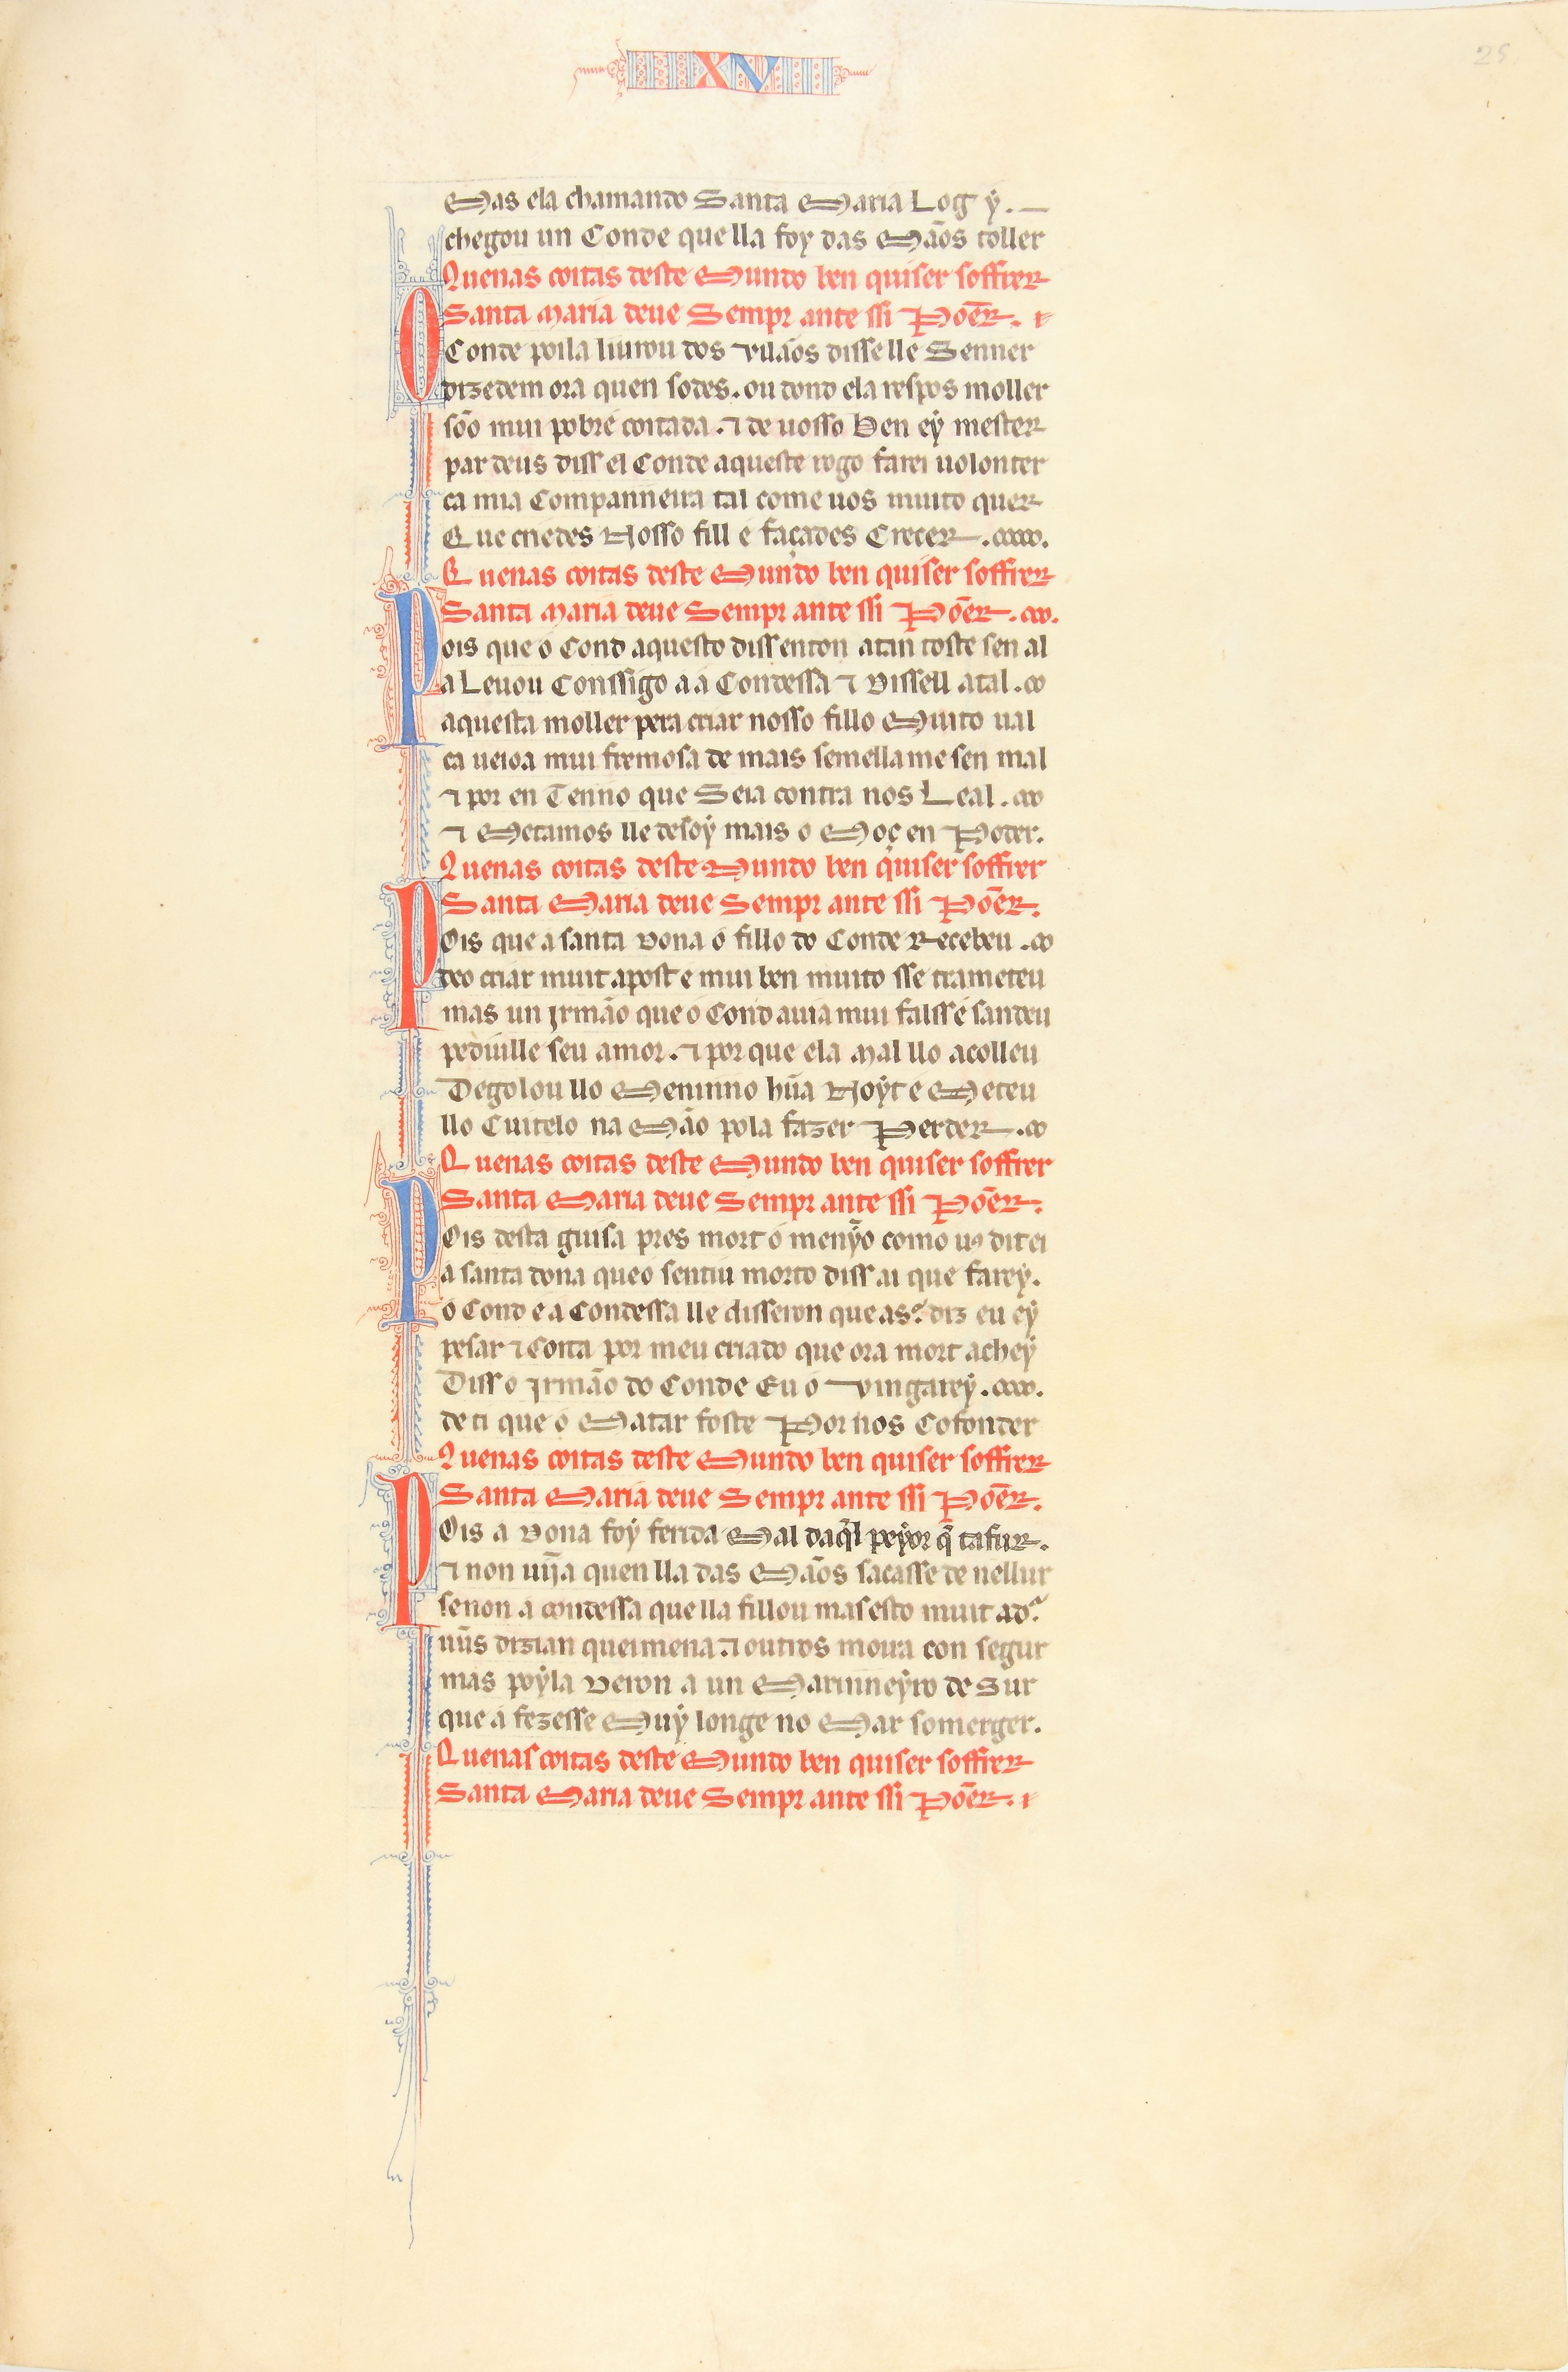 XV
25
Mas ela chamando Santa Maria Log ẏ.
chegou un Conde que lla foy das Mãos toller
Quenas coitas deste Mundo ben quiser soffrer
Santa Maria deue Sempr ante ssi Põer.
O Conde poila liurou dos vilãos disse lle Senner
dizedem ora quen sodes. ou dond ela respos moller
sõo mui pobre coitada. ⁊ de uosso Ben eẏ mester
par deus diss el Conde aqueste rogo farei uolonter
ca mia Companneira tal come uos muito quer
Que criedes Nosso fill e façades Crecer.
Quenas coitas deste Mundo ben quiser soffrer
Santa Maria deue Sempr ante ssi Põer.
Pois que o Cond aquesto diss enton atan toste sen al
a Leuou Conssigo aa Condessa ⁊ Dissell atal.
aquesta moller pera criar nosso fillo Muito ual
ca ueioa mui fremosa de mais semellame sen mal
⁊ por en Tenno que Seia contra nos Leal.
⁊ Metamos lle desoẏ mais o Moç en Poder.
Quenas coitas deste Mundo ben quiser soffrer
Santa Maria deue Sempr ante ssi Põer.
Pois que a santa Dona o fillo do Conde Recebeu.
deo criar muit apost e mui ben muito sse trameteu
mas un Jrmão que o Cond auia mui falsse sandeu
pediulle seu amor. ⁊ por que ela mal llo acolleu
Degolou llo Meninno hũa Noẏt e Meteu
llo Cuitelo na Mão pola fazer Perder.
Quenas coitas deste Mundo ben quiser soffrer
Santa Maria deue Sempr ante ssi Põer.
Pois desta guisa pres mort o menỹo como uꝰ dit ei
a santa dona queo sentiu morto diss ai que fareẏ.
o Cond e a Condessa lle disseron que as. diz eu eẏ
pesar ⁊ Coita por meu criado que ora mort acheẏ
Diss o Jrmão do Conde Eu o vingareẏ.
de ti que o Matar foste Por nos Cofonder
Quenas coitas deste Mundo ben quiser soffrer
Santa Maria deue Sempr ante ssi Põer.
Pois a Dona foẏ ferida Mal daq̃l peẏor q̃ tafur.
⁊ non uĩj̃a quen lla das Mãos sacasse de nellur
senon a condessa que lla fillou mas esto muit ad.
uũs dizian queimena. ⁊ outros moira con segur
mas poẏla Deron a un Marinneẏro de Sur
que a fezesse Muẏ longe no Mar somerger.
Quenas coitas deste Mundo ben quiser soffrer
Santa Maria deue Sempr ante ssi Põer.